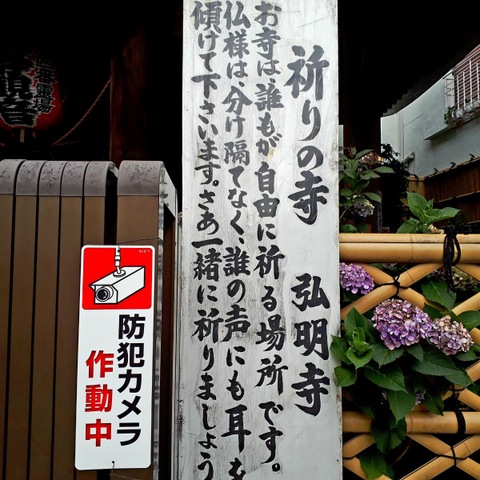 祈りの寺 弘明寺
お寺は、誰もが自由に祈る場所です。
仏様は、分け隔てなく、誰の声にも耳を
傾けて下さいます。さあ一緒に祈りましょう
防犯カメラ
作動中